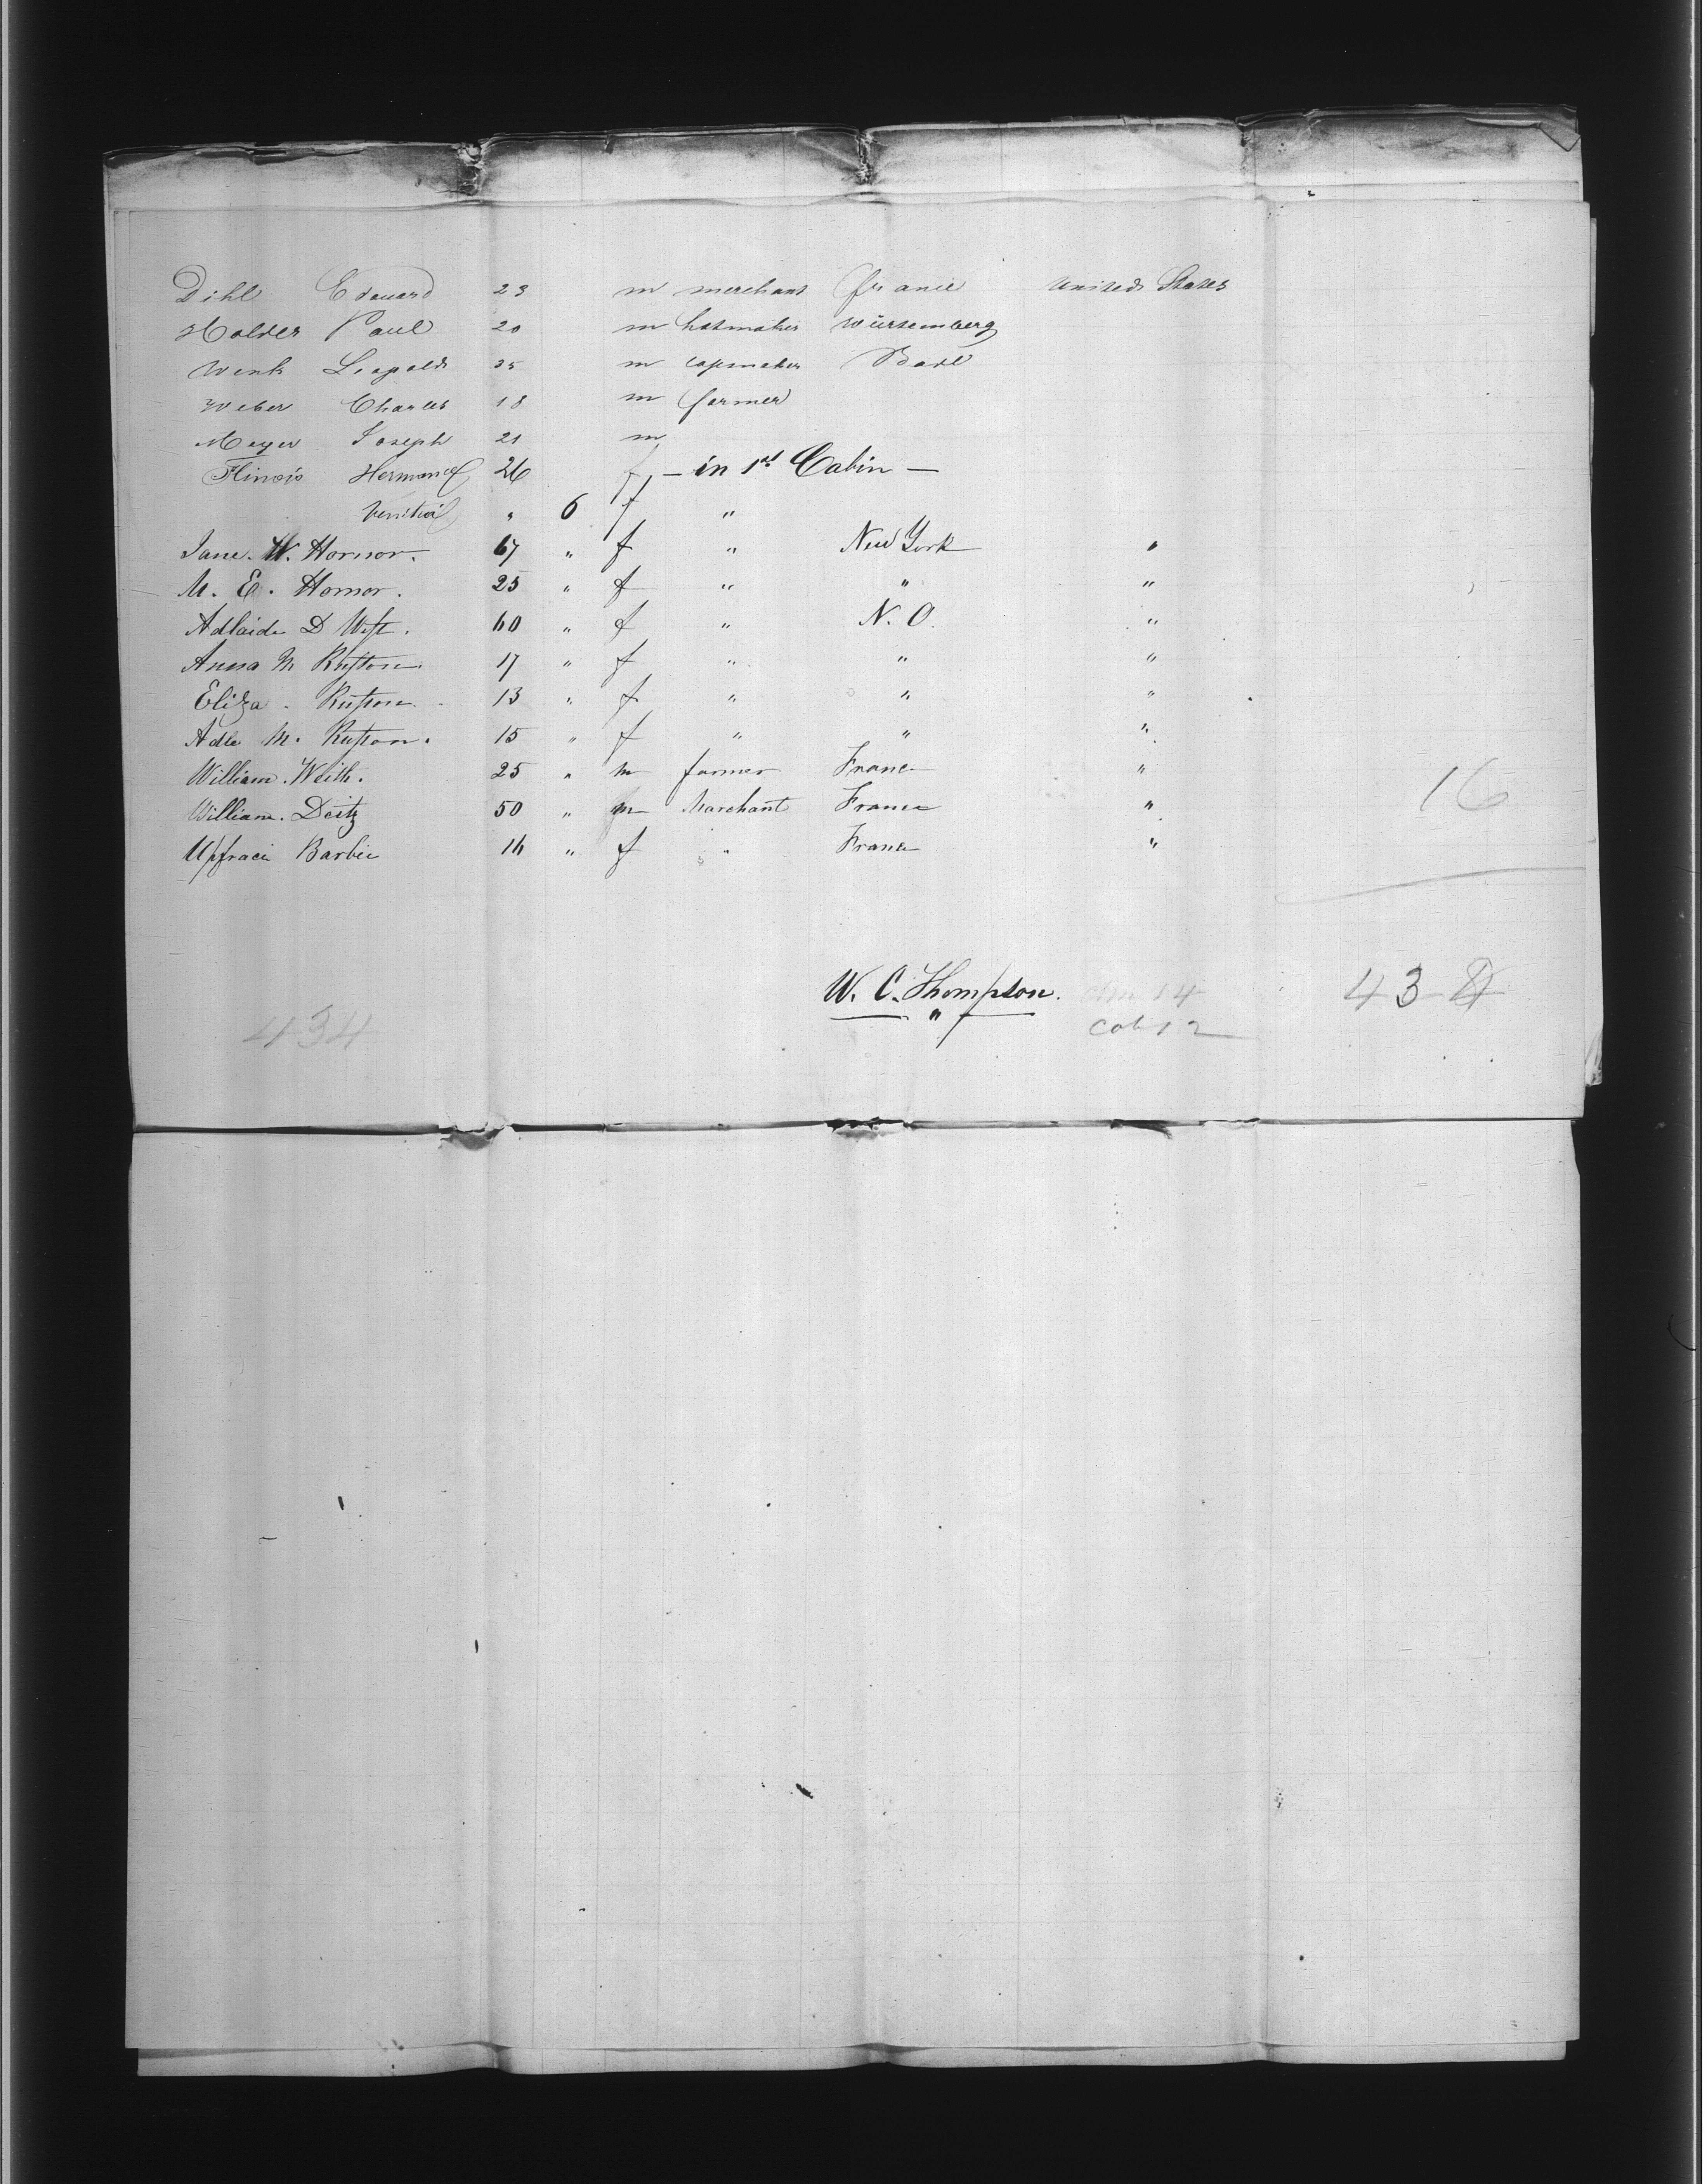 Dihl Edouard 23 m merchant france United States
Holder Paul 20 m hatmaker Würtemberg
Wenk Leopold 35 m capmaker Bade
Weber Charles 18 m farmer
Meyer Joseph 21 m
Flinois Hermance 26 f, — in 1st Cabin —
" 6 f "
Jane. W. Hornor. 67 " f " New York "
M. E. Hornor. 25 " f " " "
Adlaide D West. 60 " f " N. O. "
Anna M Ruston. 17 " f " " "
Eliza. Ruston. 13 " f " " "
Adle M. Ruston. 15 " f " " "
William. Weith. 25 " m farmer France "
William. Deitz 50 " m Marchant France "
Barbie " f " France "
16
W. C. Thompson. 14
"
434
Cab 12
43